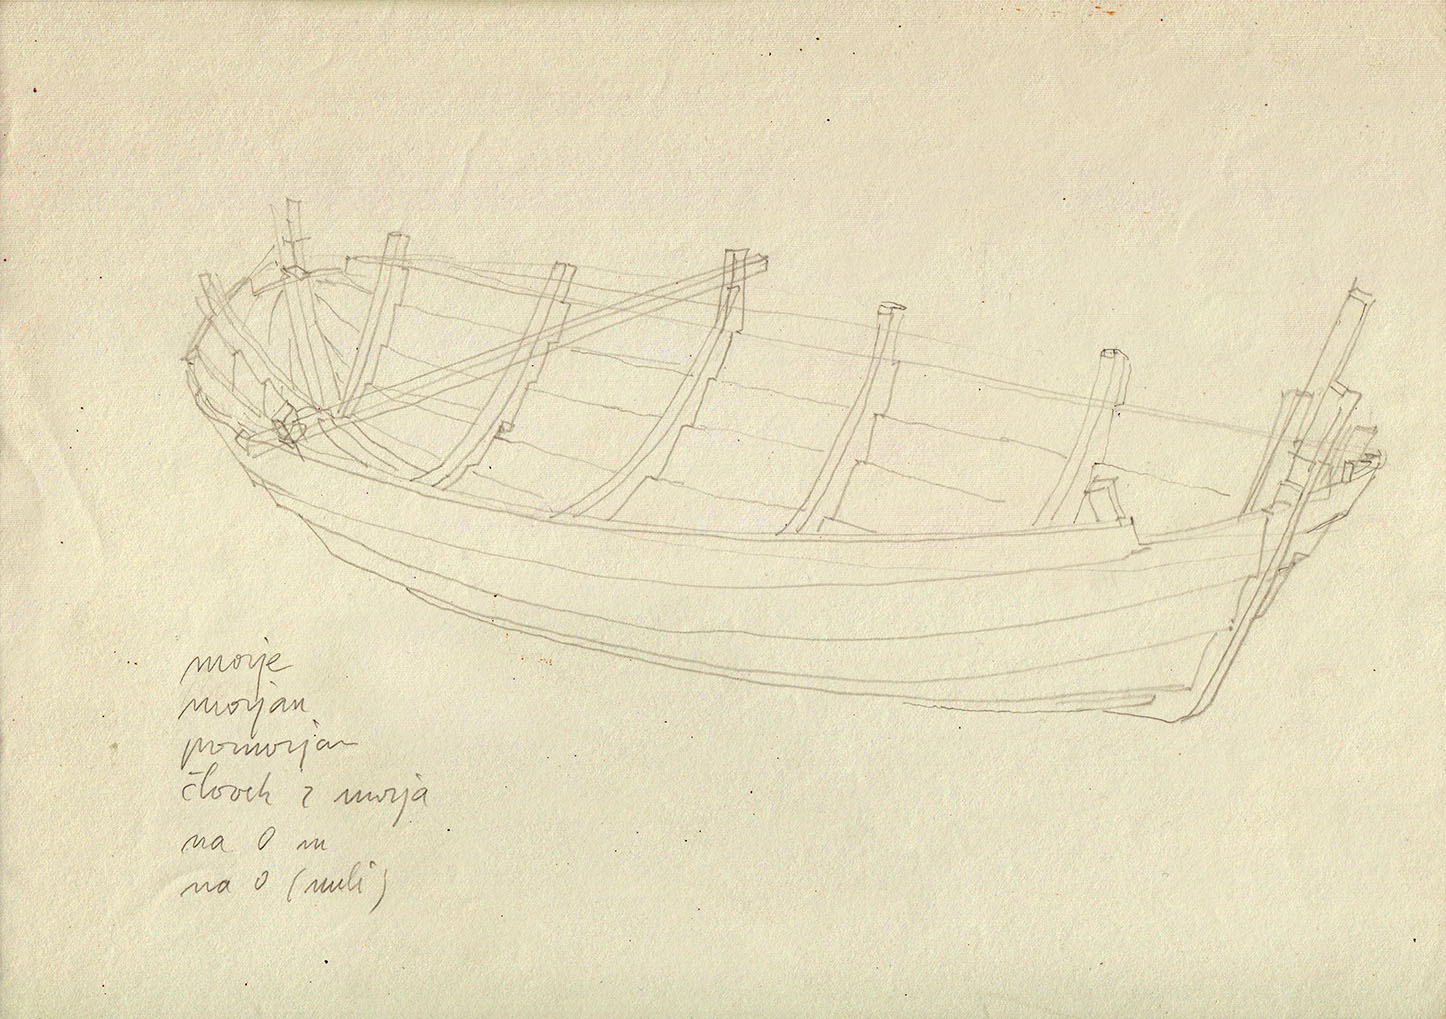 morje
morjan
pomorjan
človek z morja
na 0 m
na 0 (nuli)